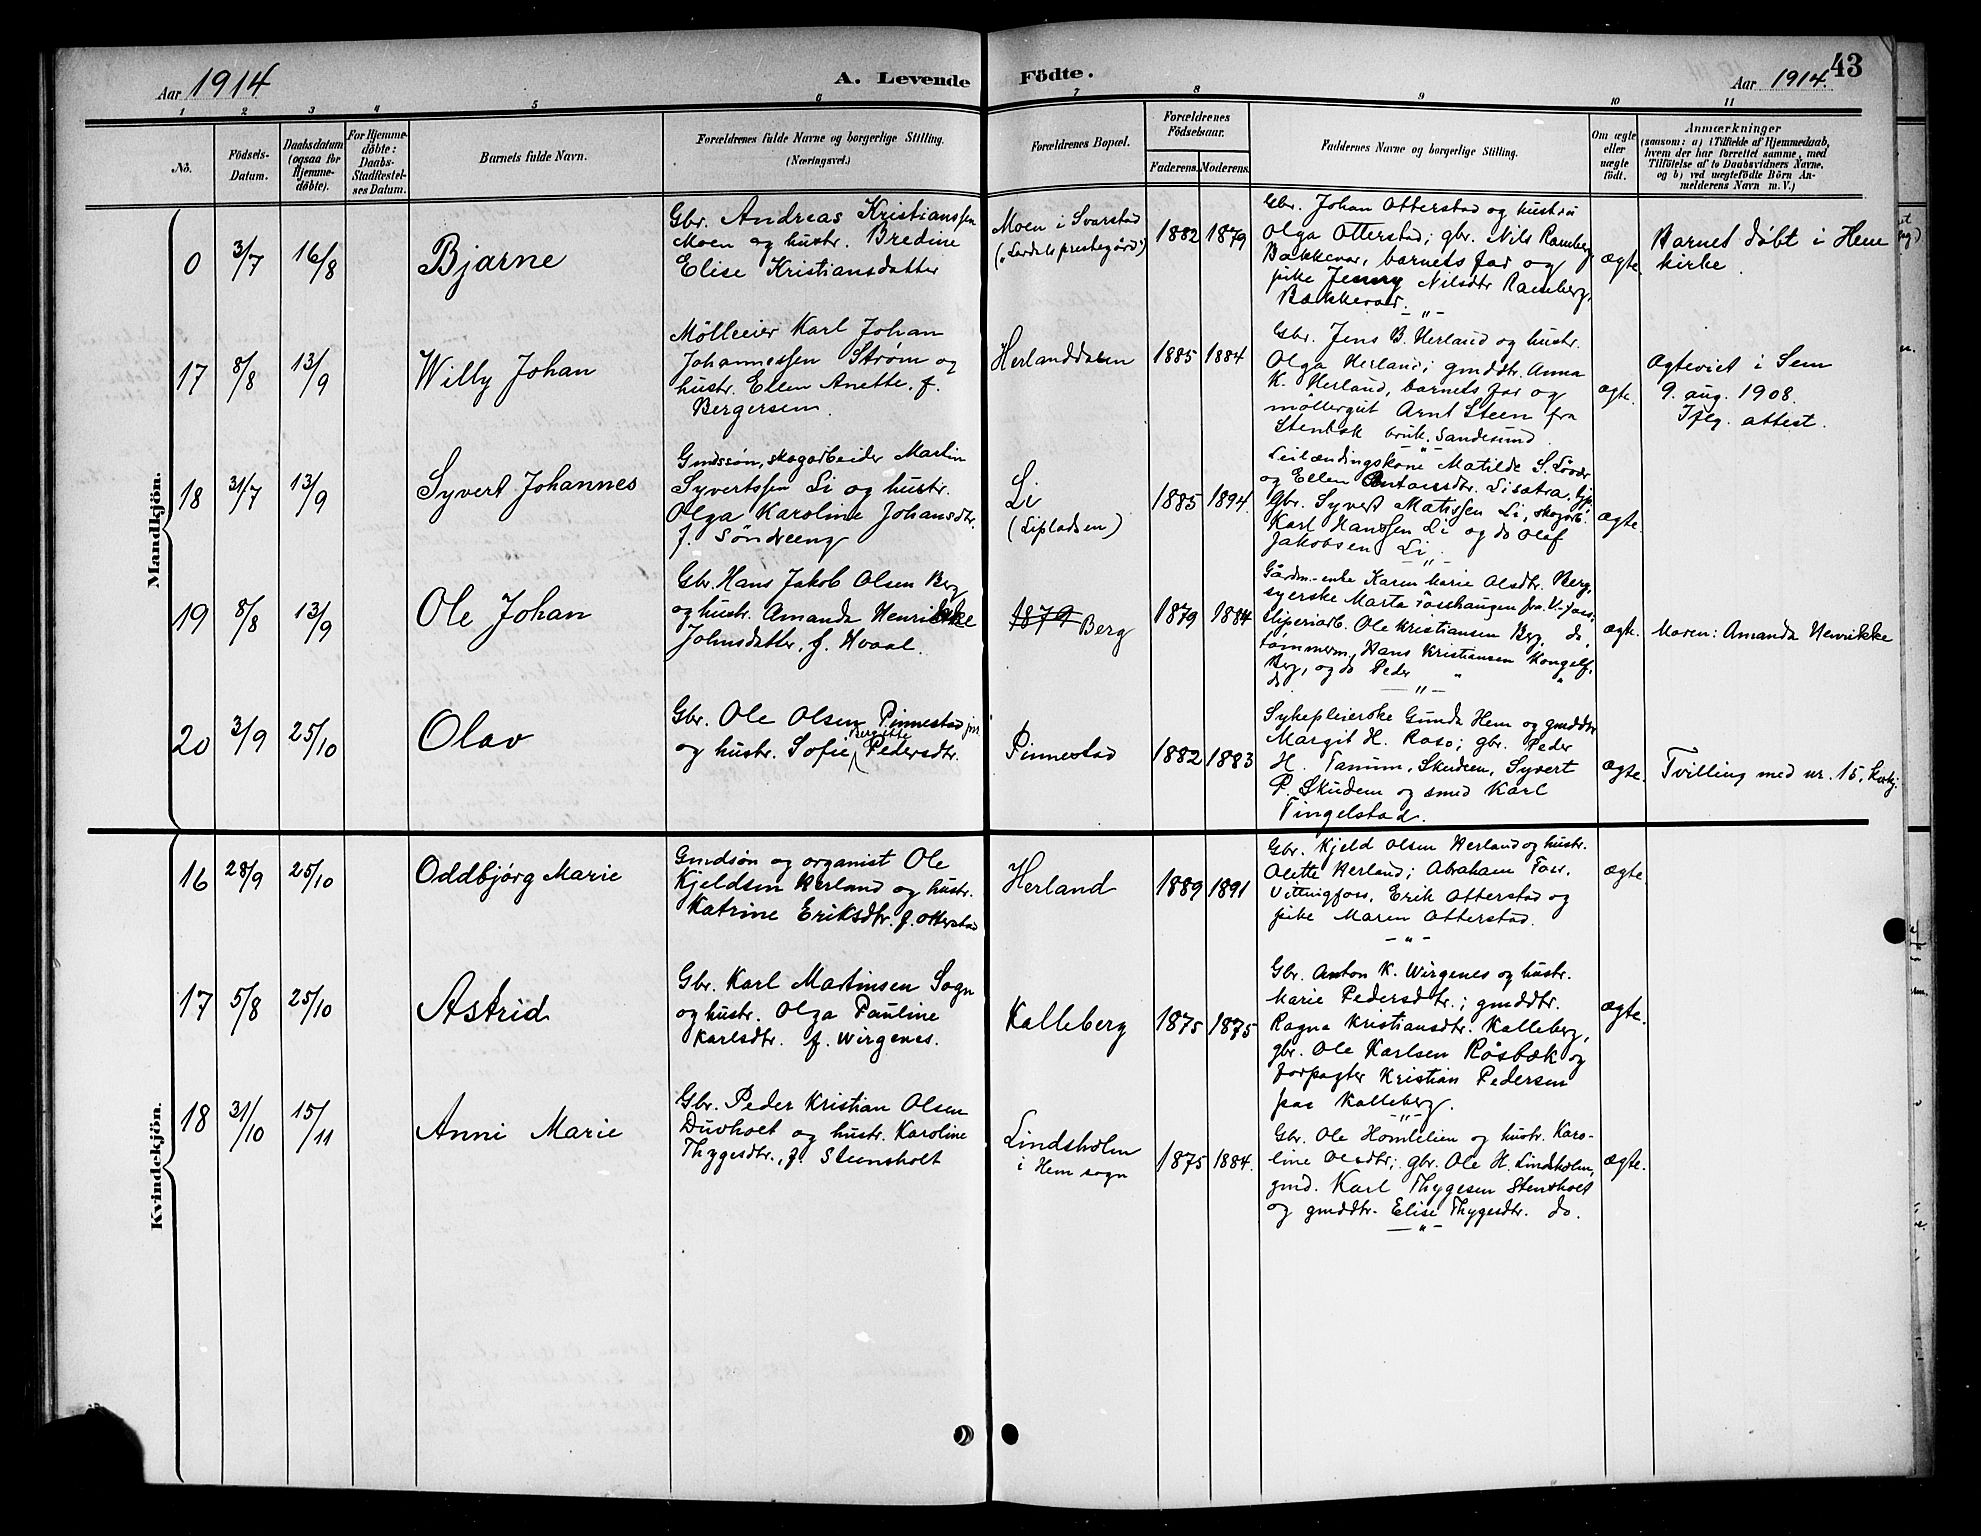 Aar 1914
A. Levende
Födte.
Aar 1914.
43
1 2 3 4 5 6 7 8 9 10 11
No.
Födsels-
Datum.
Daabsdatum
(ogsaa for
Hjemme-
döbte).
For Hjemme-
döbte:
Daabs-
Stadfæstel-
ses Datum.
Barnets fulde Navn.
Forældrenes fulde Navne og borgerlige Stilling.
(Næringsvei.)
Forældrenes Bopæl.
Forældrenes
Födselsaar.
Faderens. Moderens.
Faddernes Navne og borgerlige Stilling.
Om ægte
eller
uægte
födt.
Anmærkninger
(saasom: a) i Tilfælde af Hjemmedaab,
hvem der har forrettet samme, med
Tilföielse af to Daabsvidners Navne,
og b) ved uægtefödte Börn An-
melderens Navn m. V.)
Mandkjön.
0
3/7
16/8
Bjarne
Gbr. Andreas Kristianssen
Moen og hustr. Bredine
Elise Kristiansdatter
Moen i Svarstad
("Lardals prestegård")
1882
1879
Gbr. Johan Otterstad og hustru
Olga Otterstad; gbr. Nils Ramberg
Bakkevar, barnets far og
pike Jenny Nilsdtr Ramberg,
Bækkevar.
— " —
ægte.
Barnet döbt i Hem
kirke.
17
8/8
13/9
Willy Johan
Mölleeier Karl Johan
Johannessen Strøm og
hustr. Ellen Anette, f.
Bergersen.
Herlanddalen
1885
1884
Gbr. Jens B. Herland og hustr.
Olga Herland; gmddtr. Anna
K. Herland, barnets far og
möllergut Arnt Steen fra
Stenbæk bruk, Sandesund.
ægte.
Ægteviet i Sem
9. aug. 1908.
Ifлg. attest.
18
31/7
13/9
Syvert Johannes
Gmdssön, skogarbeider Martin
Syvertssen Li og hustr.
Olga Karoline Johansdtr.
f. Søndreeng
Li
(Lipladsen)
1885
1894
Leilændingskone Matilde S.
og Ellen Antonsdtr. Lisætra,
Gbr. Syvert Matissen Li, skogarb.
Karl Hanssen Li og do Olaf
Jakobsen Li.
— " —
ægte.
19
8/8
13/9
Ole Johan
Gbr. Hans Jakob Olsen Berg
og hustr. Amanda Henrikke
Johnsdatter, f. Hvaal.
1879 Berg
1879
1884
Gårdm.-enke Karen Marie Olsdtr. Berg,
syerske Marta Fosshaugen fra V-foss,
sliperiarb. Ole Kristiansen Berg, do,
tömmerm. Hans Kristiansen Kongsf.
Berg, og do Peder " "
do — " —
ægte.
Moren: Amanda Henrikke
20
3/9
25/10
Olav
Gbr. Ole Olsen Pinnestad jnr
og hustr. Sofie Bergitte Pedersdtr.
Pinnestad
1882
1883
Sykepleierske Gunda Hem og gmddtr
Margit H. Raso; gbr. Peder
H. Tanum, Skudeen, Syvert
P. Skuden og smed Karl
Tingelstad.
ægte.
Tvilling med nr. 15. kvkj.
Kvindekjön.
16
28/9
25/10
Oddbjørg Marie
Gmdsön og organist Ole
Kjeldsen Herland og hustr.
Katrine Eriksdtr. f. Otterstad
Herland
1889
1891
Gbr. Kjeld Olsen Herland og hustr.
Alette Herland; Abraham Foss,
Vittingfoss, Erik Otterstad og
pike Maren Otterstad.
— " —
ægte.
17
5/8
25/10
Astrid
Gbr. Karl Martinsen Sogn
og hustr. Olga Pauline
Karlsdtr. f. Wirgenes.
Kalleberg
1875
1875
Gbr. Anton K. Wirgenes og hustr.
Marie Pedersdtr.; gmddtr.
Ragna Kristiansdtr. Kalleberg,
gbr. Ole Karlsen Råsbæk og
forpagter Kristian Pedersen
paa Kalleberg.
— " —
ægte.
18
31/10
15/11
Anni Marie
Gbr. Peder Kristian Olsen
Duvholt og hustr. Karoline
Thygesdtr., f. Steensholt
Lindsholm
i Hem sogn
1875
1884.
Gbr. Ole Homlelien og hustr. Karo-
line Olsdtr; gbr. Ole H. Lindsholm,
gmd. Karl Thygesen Stensholt
og gmddtr. Elise Thygesdtr. do.
— " —
ægte.